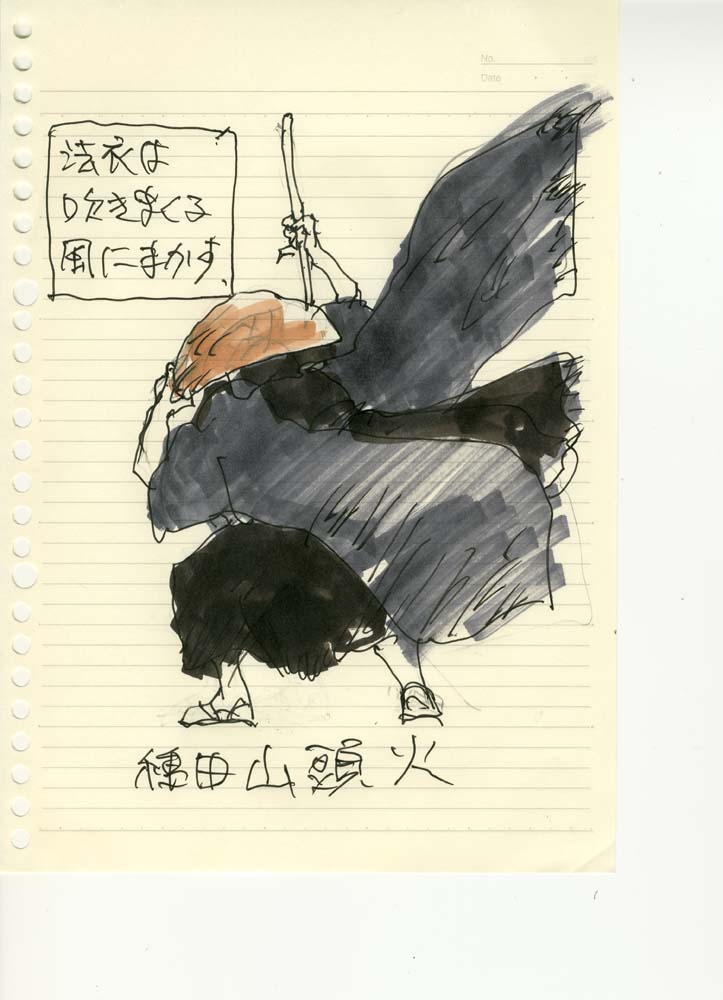 No.
Date
法衣は
吹きまくる
風にまかす
種田山頭火